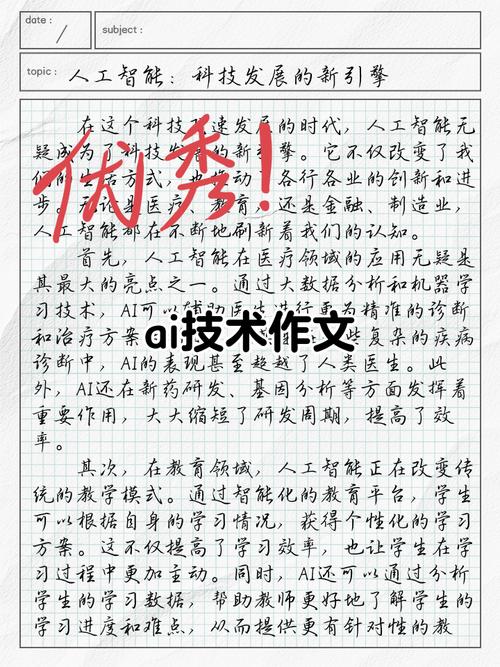 date :
subject :
topic : 人工智能：科技发展的新引擎
在这个科技飞速发展的时代，人工智能无
疑成为了科技发展的新引擎。它不仅改变了我
们的生活方式，也推动了各行各业的创新和进
步。无论是医疗、教育，还是金融、制造业，
人工智能都在不断地刷新着我们的认知。
优秀！
首先，人工智能在医疗领域的应用无疑是
其最大的亮点之一。通过大数据分析和机器学
习技术，AI可以辅助医生进行更为精准的诊断
和治疗方案
些复杂的疾病
ai技术作文
诊断中，AI的表现甚至超越了人类医生。此
外，AI还在新药研发、基因分析等方面发挥着
重要作用，大大缩短了研发周期，提高了效
率。
其次，在教育领域，人工智能正在改变传
统的教学模式。通过智能化的教育平台，学生
可以根据自身的学习情况，获得个性化的学习
方案。这不仅提高了学习效率，也让学生在学
习过程中更加主动。同时，AI还可以通过分析
学生的学习数据，帮助教师更好地了解学生的
学习进度和难点，从而提供更有针对性的教